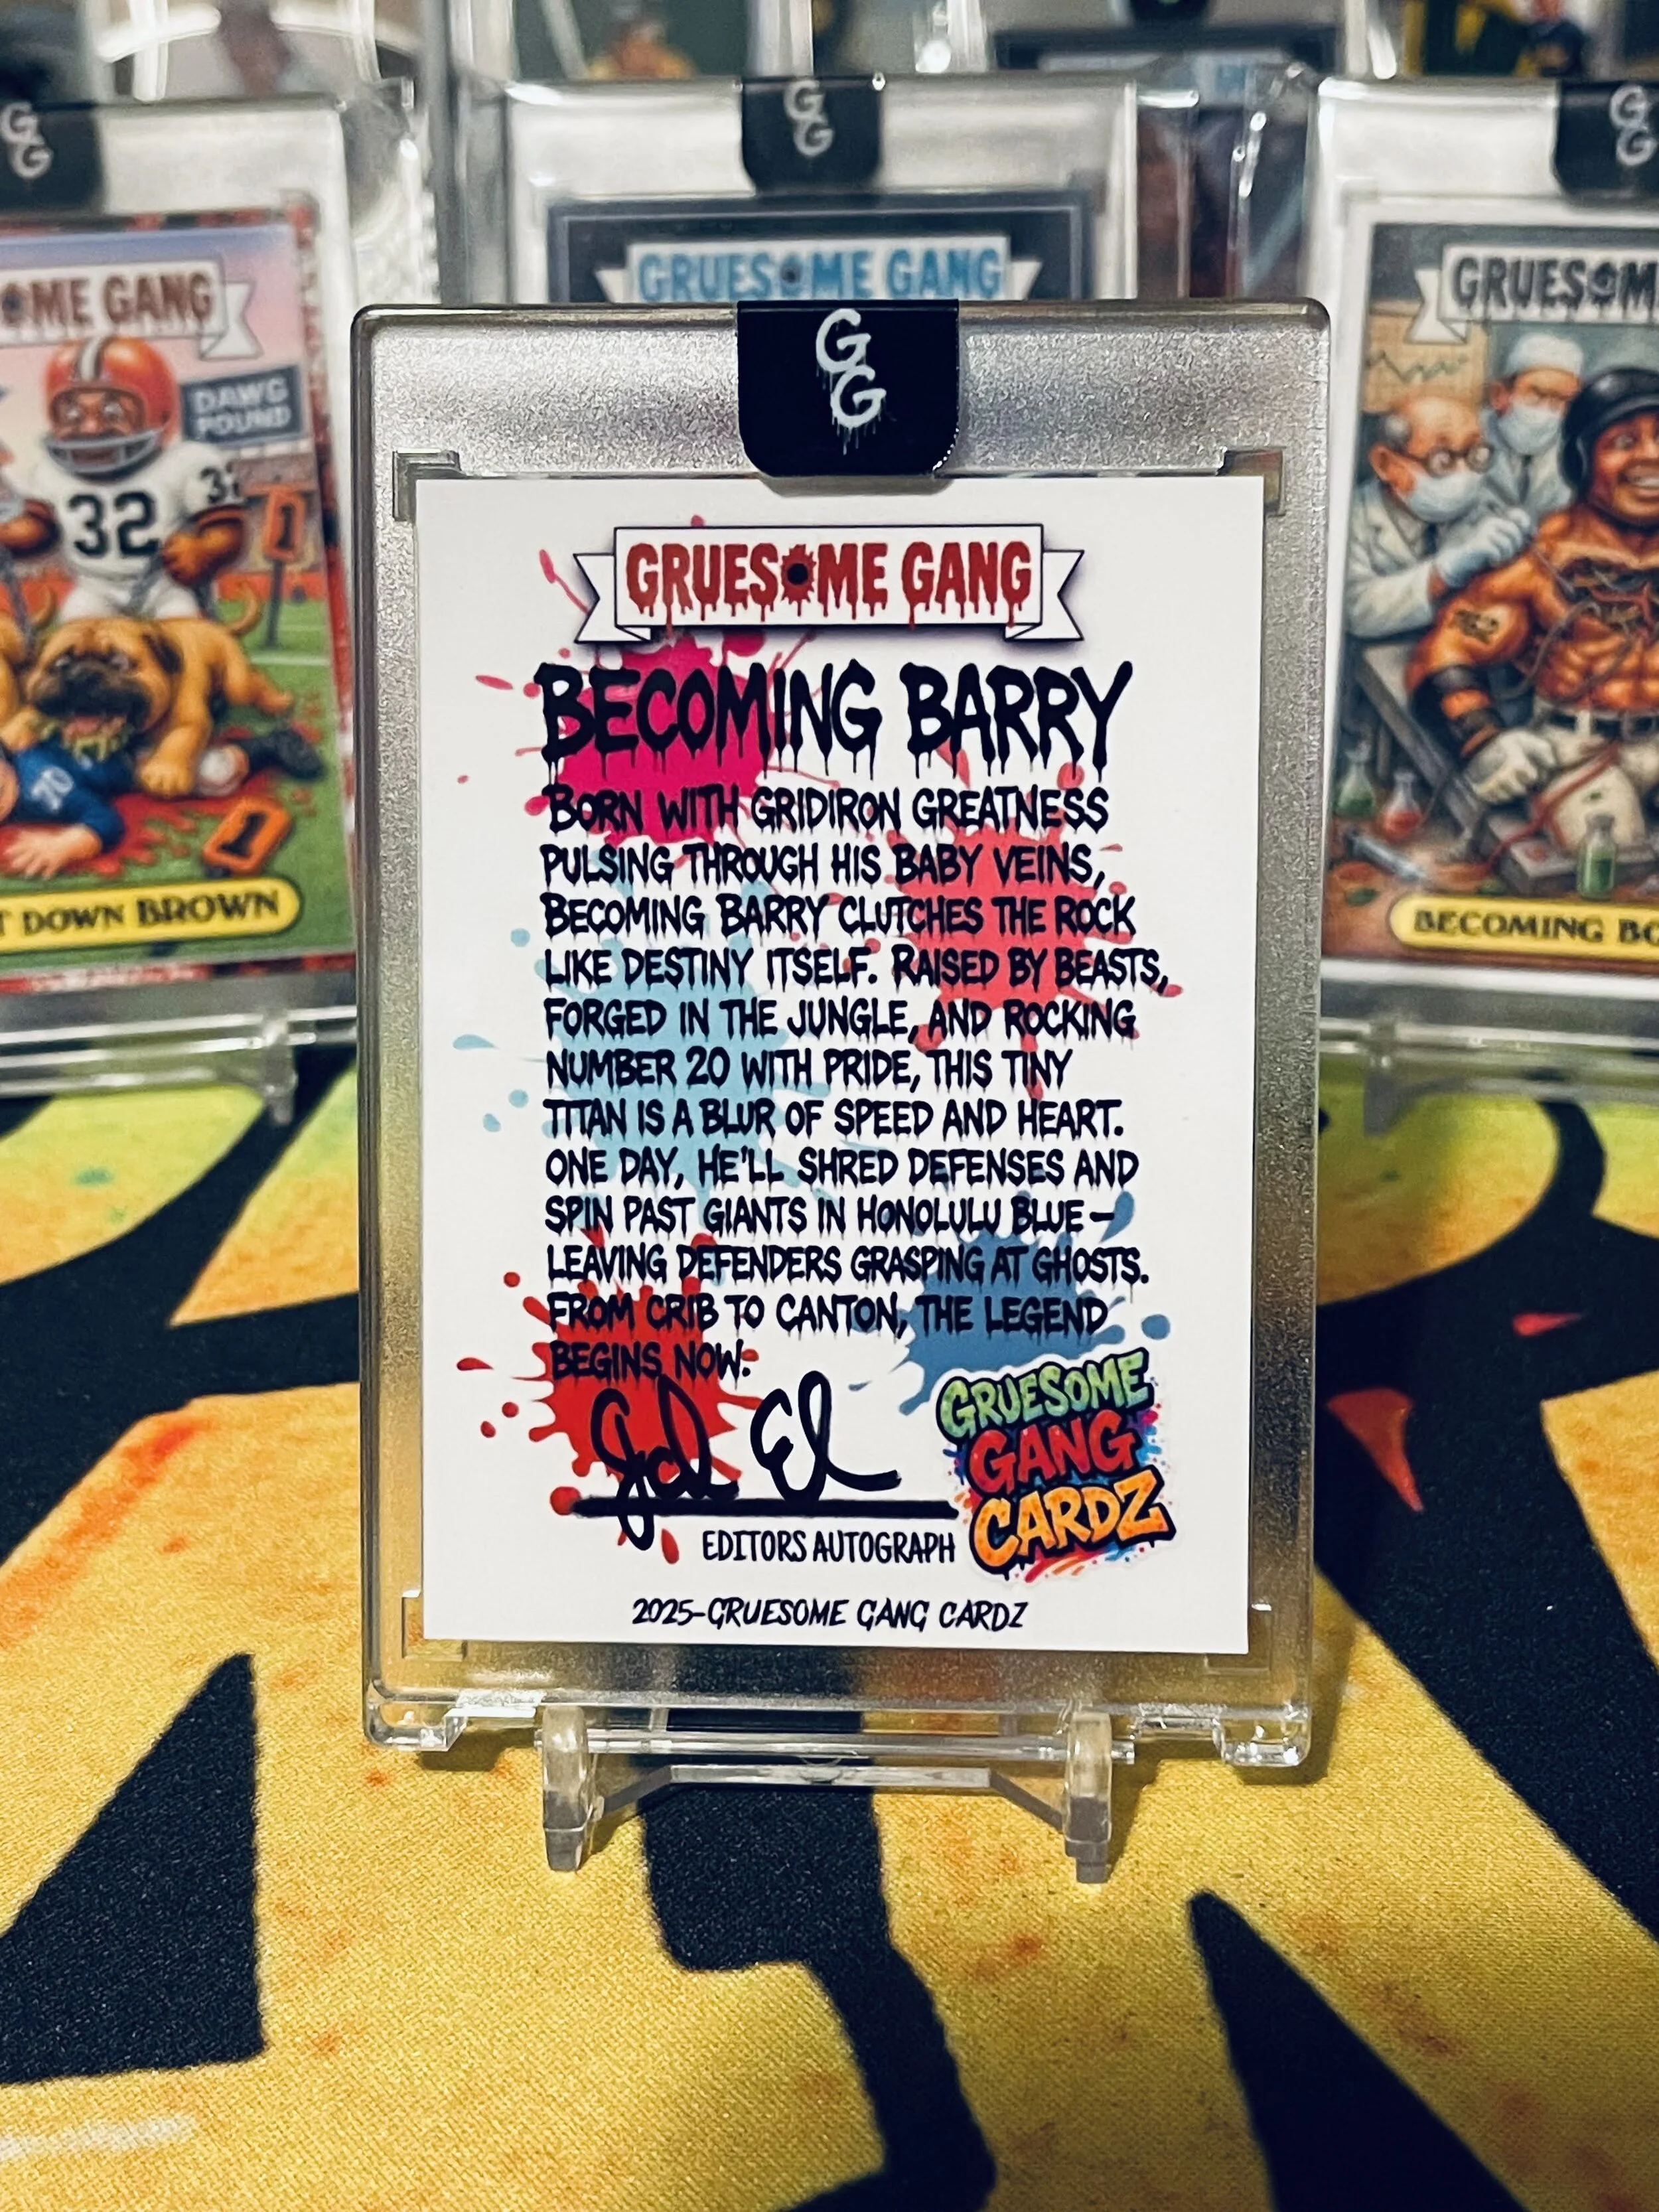 G
G
G
G
G
G
GRUESOME GANG
OME GANG
GRUESOM
DAWG
POUND
32
32
DOWN BROWN
BECOMING BO
G
G
GRUESOME GANG
BECOMING BARRY
BORN WITH GRIDIRON GREATNESS
PULSING THROUGH HIS BABY VEINS,
BECOMING BARRY CLUTCHES THE ROCK
LIKE DESTINY ITSELF. RAISED BY BEASTS,
FORGED IN THE JUNGLE, AND ROCKING
NUMBER 20 WITH PRIDE, THIS TINY
TITAN IS A BLUR OF SPEED AND HEART.
ONE DAY, HE'LL SHRED DEFENSES AND
SPIN PAST GIANTS IN HONOLULU BLUE—
LEAVING DEFENDERS GRASPING AT GHOSTS.
FROM CRIB TO CANTON, THE LEGEND
BEGINS NOW.
EDITORS AUTOGRAPH
GRUESOME
GANG
CARDZ
2025-GRUESOME GANG CARDZ